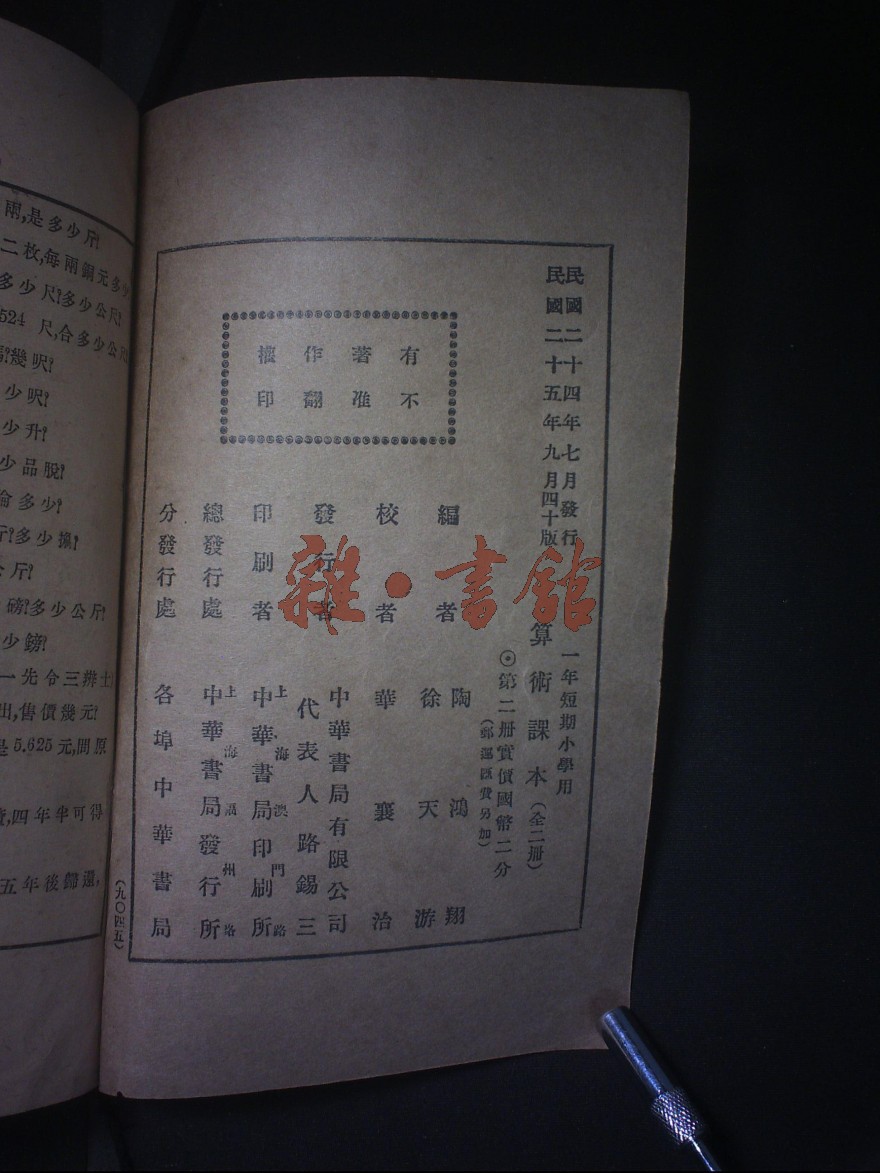 民國二十四年七月發行
民國二十五年九月四十版
一年短期小學用
算術課本（全二冊）
⊙第二册實價國幣二分
（郵運匯費另加）
有著作權
不准翻印
編者 陶鴻翔
徐天游
校者 華襄治
發行者 中華書局有限公司
代表人路錫三
印刷者 上海澳門路
中華書局印刷所
總發行處 上海 州路
中華書局發行所
分發行處 各埠中華書局
（九〇四五）
雜·書館
兩,是多少斤?
二枚,每兩銅元多少
多少尺?多少公尺?
524 尺,合多少公
幾呎?
少呎?
少升?
少品脫?
多少?
多少
斤?
磅?多少公斤?
少鎊?
一先令三辨士
出,售價幾元?
是5.625元,問原
四年半可得
五年後歸還,